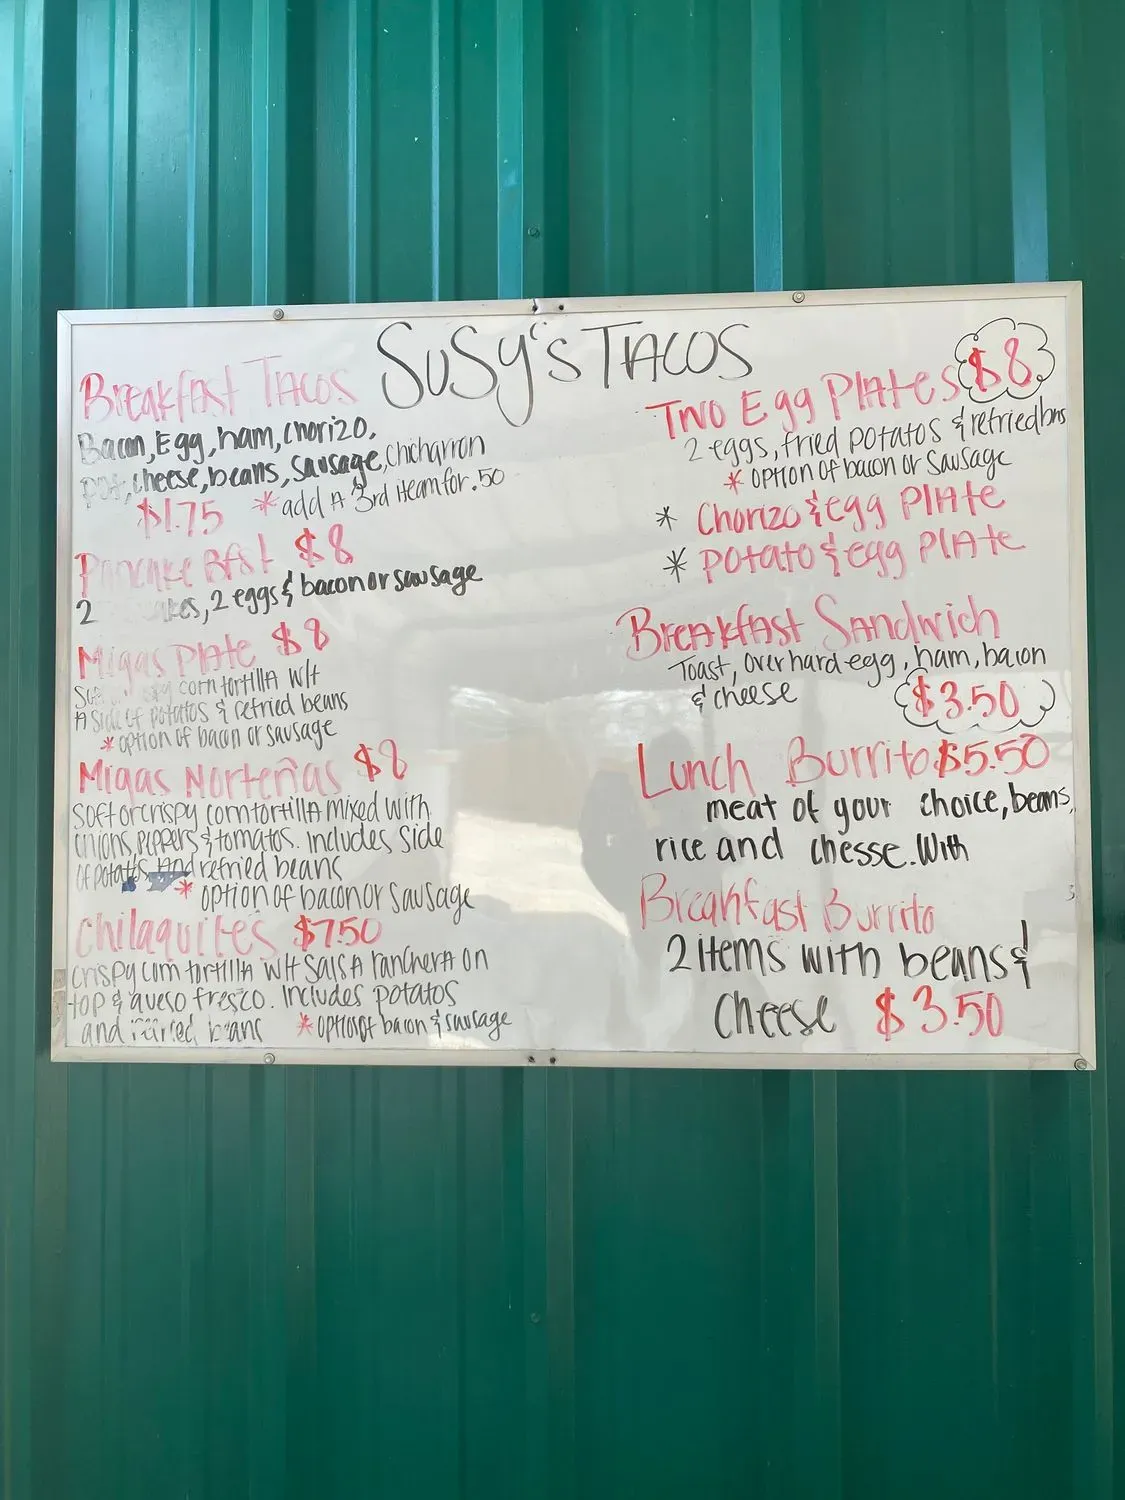 SuSy's TACOS
Breakfast TACOS
Bacon, Egg, ham, chorizo,
pot, cheese, beans, sausage, chicharron
$1.75 * add A 3rd item for .50
Pancake BFST $8
2 cakes, 2 eggs & bacon or sausage
Migas Plate $8
corn tortillA w/t
A side of potatos & refried beans
* option of bacon or sausage
Migas Norteñas $8
soft or crispy corn tortillA mixed with
onions, peppers & tomatos. includes side
of potatos And refried beans
* option of bacon or sausage
Chilaquiles $7.50
crispy corn tortillA w/t salsA rancherA on
top & queso fresco. includes potatos
and refried beans * option of bacon & sausage
Two Egg Plates $8
2 eggs, fried potatos & refried bns
* option of bacon or sausage
* Chorizo & egg PlAte
* Potato & egg PlAte
Breakfast Sandwich
Toast, over hard egg, ham, bacon
& cheese $3.50
Lunch Burrito $5.50
meat of your choice, beans,
rice and chesse. With
Breakfast Burrito
2 items with beans &
cheese $3.50